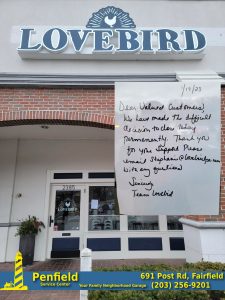 LOVEBIRD
1/19/23
Dear Valued Customers,
We have made the difficult
decision to close today
permanently. Thank you
for your support. Please
email
with any questions
Sincerely
Team Lovebird
2385
LOVEBIRD
Penfield
Service Center
Your Family Neighborhood Garage
691 Post Rd, Fairfield
(203) 256-9201